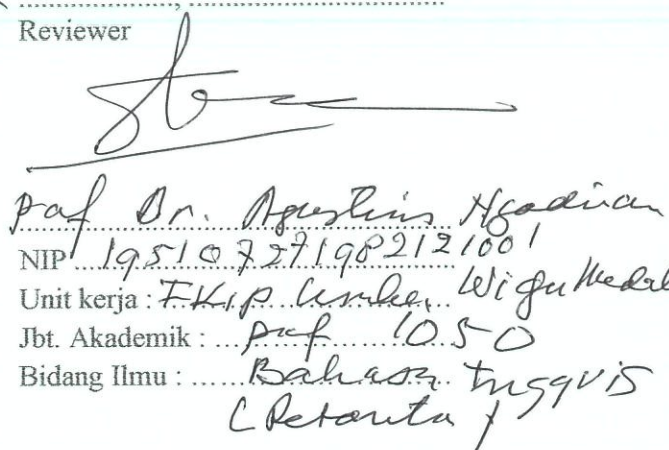 ....................., ........................................
Reviewer
Prof Dr. Agustinus Ngadiman
NIP 195107271982121001
Unit kerja : FKIP
Jbt. Akademik : Prof 1050
Bidang Ilmu : Bahasa Inggris
(Retorika)